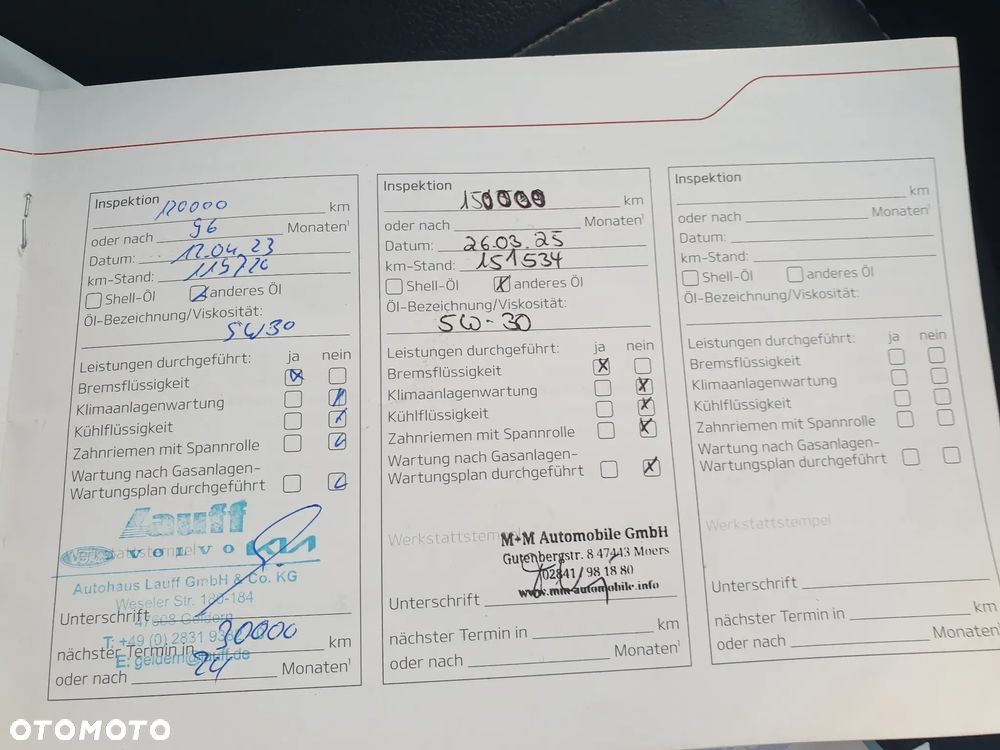 Inspektion 120000 km
oder nach 96 Monaten¹
Datum: 12.04.23
km-Stand: 115720
Shell-Öl anderes Öl
Öl-Bezeichnung/Viskosität:
5W30
Leistungen durchgeführt: ja nein
Bremsflüssigkeit
Klimaanlagenwartung
Kühlflüssigkeit
Zahnriemen mit Spannrolle
Wartung nach Gasanlagen-
Wartungsplan durchgeführt
Lauff
Werkstattstempel
VOLVO KIA
Autohaus Lauff GmbH & Co. KG
Weseler Str. 180-184
Unterschrift
47608 Geldern
T: +49 (0) 2831
nächster Termin in 30000 km
E: geldern@lauff.de
oder nach 24 Monaten¹
Inspektion 150000 km
oder nach Monaten¹
Datum: 26.03.25
km-Stand: 151534
Shell-Öl X anderes Öl
Öl-Bezeichnung/Viskosität:
5W-30
Leistungen durchgeführt: ja nein
Bremsflüssigkeit X
Klimaanlagenwartung X
Kühlflüssigkeit X
Zahnriemen mit Spannrolle X
Wartung nach Gasanlagen-
Wartungsplan durchgeführt X
Werkstattstempel
M+M Automobile GmbH
Gutenbergstr. 8 47443 Moers
02841 / 98 18 80
www.mm-automobile.info
Unterschrift
nächster Termin in km
oder nach Monaten¹
Inspektion
km
oder nach Monaten¹
Datum:
km-Stand:
Shell-Öl anderes Öl
Öl-Bezeichnung/Viskosität:
Leistungen durchgeführt: ja nein
Bremsflüssigkeit
Klimaanlagenwartung
Kühlflüssigkeit
Zahnriemen mit Spannrolle
Wartung nach Gasanlagen-
Wartungsplan durchgeführt
Werkstattstempel
Unterschrift
nächster Termin in km
oder nach Monaten¹
OTOMOTO